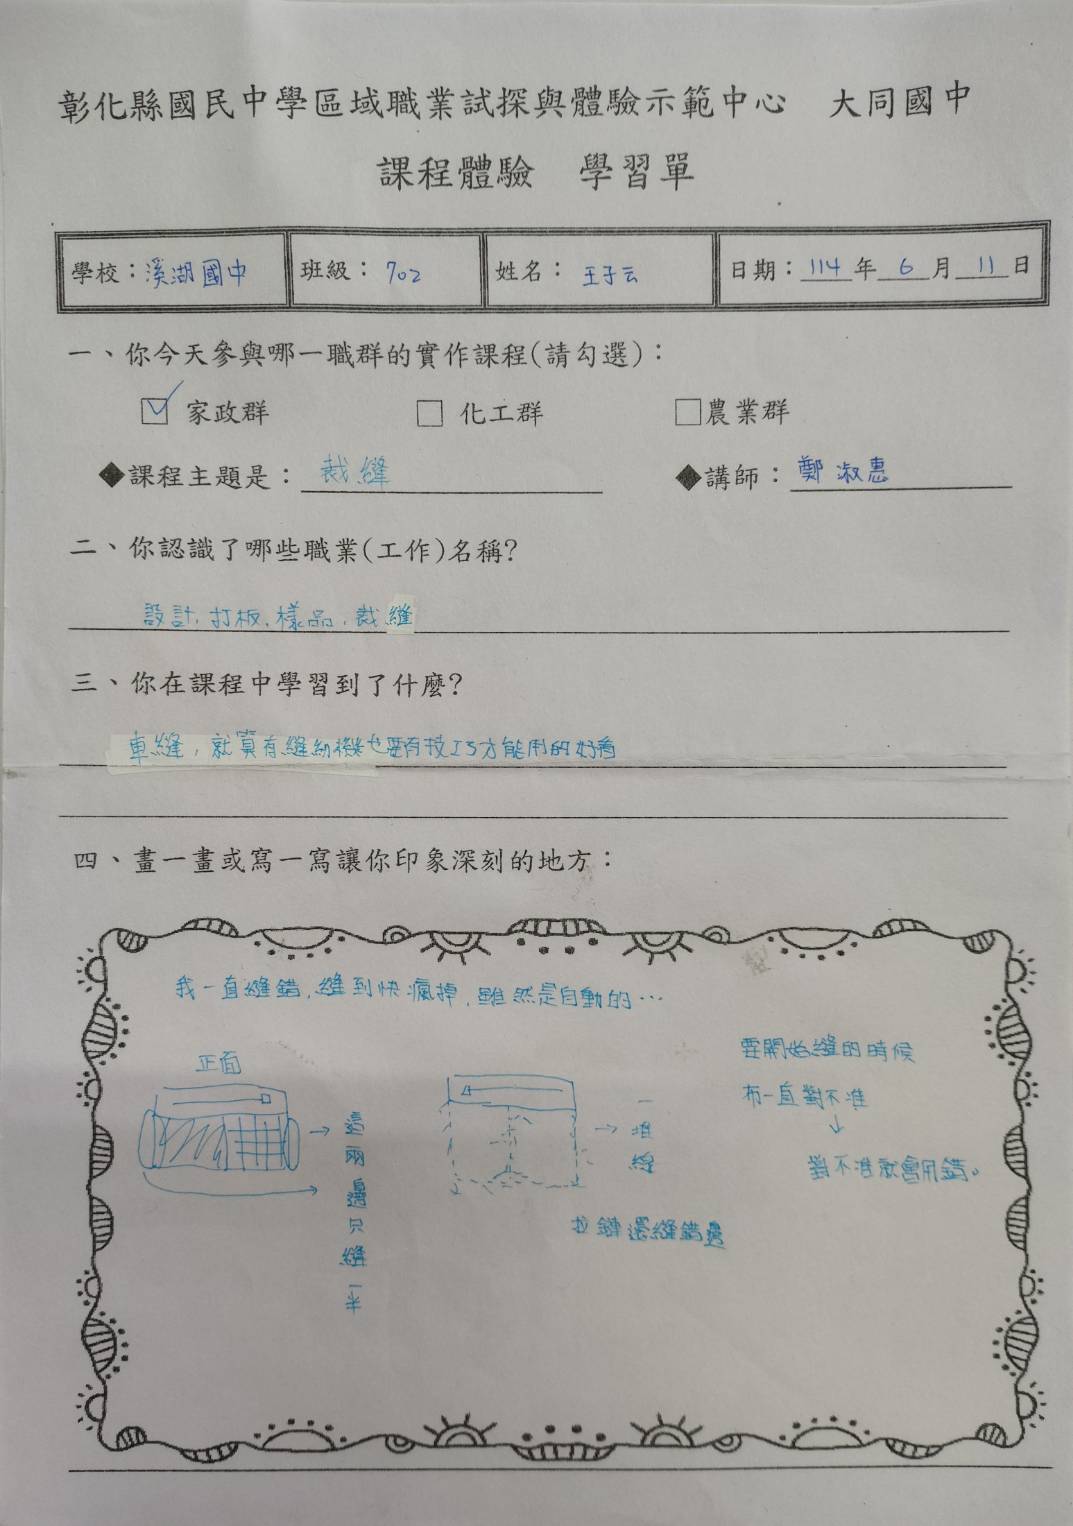 彰化縣國民中學區域職業試探與體驗示範中心　大同國中
課程體驗　學習單
學校：溪湖國中 班級：702 姓名：王子云 日期：114年6月11日
一、你今天參與哪一職群的實作課程(請勾選)：
☑ 家政群 □ 化工群 □農業群
◆課程主題是：裁縫 ◆講師：鄭淑惠
二、你認識了哪些職業(工作)名稱?
設計、打板、樣品、裁縫
三、你在課程中學習到了什麼?
車縫，就算有縫紉機也要有技巧才能用的好看
四、畫一畫或寫一寫讓你印象深刻的地方：
我一直縫錯，縫到快瘋掉，雖然是自動的…
正面
→ 這兩邊只縫一半
→ 一堆線
拉鏈還縫錯邊
要開始縫的時候
布一直對不准
↓
對不准就會用錯。